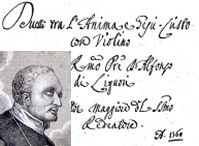 Duetto tra l'Anima e Gesù Cristo
con Violino
Rmo Pre D Alfonso
de Liguori
Maggiore del SSmo
Redentore
A. 1760